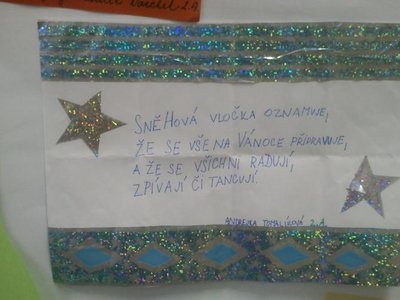 2.A
SNĚHOVÁ VLOČKA OZNAMUJE,
ŽE SE VŠE NA VÁNOCE PŘIPRAVUJE,
A ŽE SE VŠICHNI RADUJÍ,
ZPÍVAJÍ ČI TANCUJÍ.
ANDREJKA TOMALÍKOVÁ 2.A.